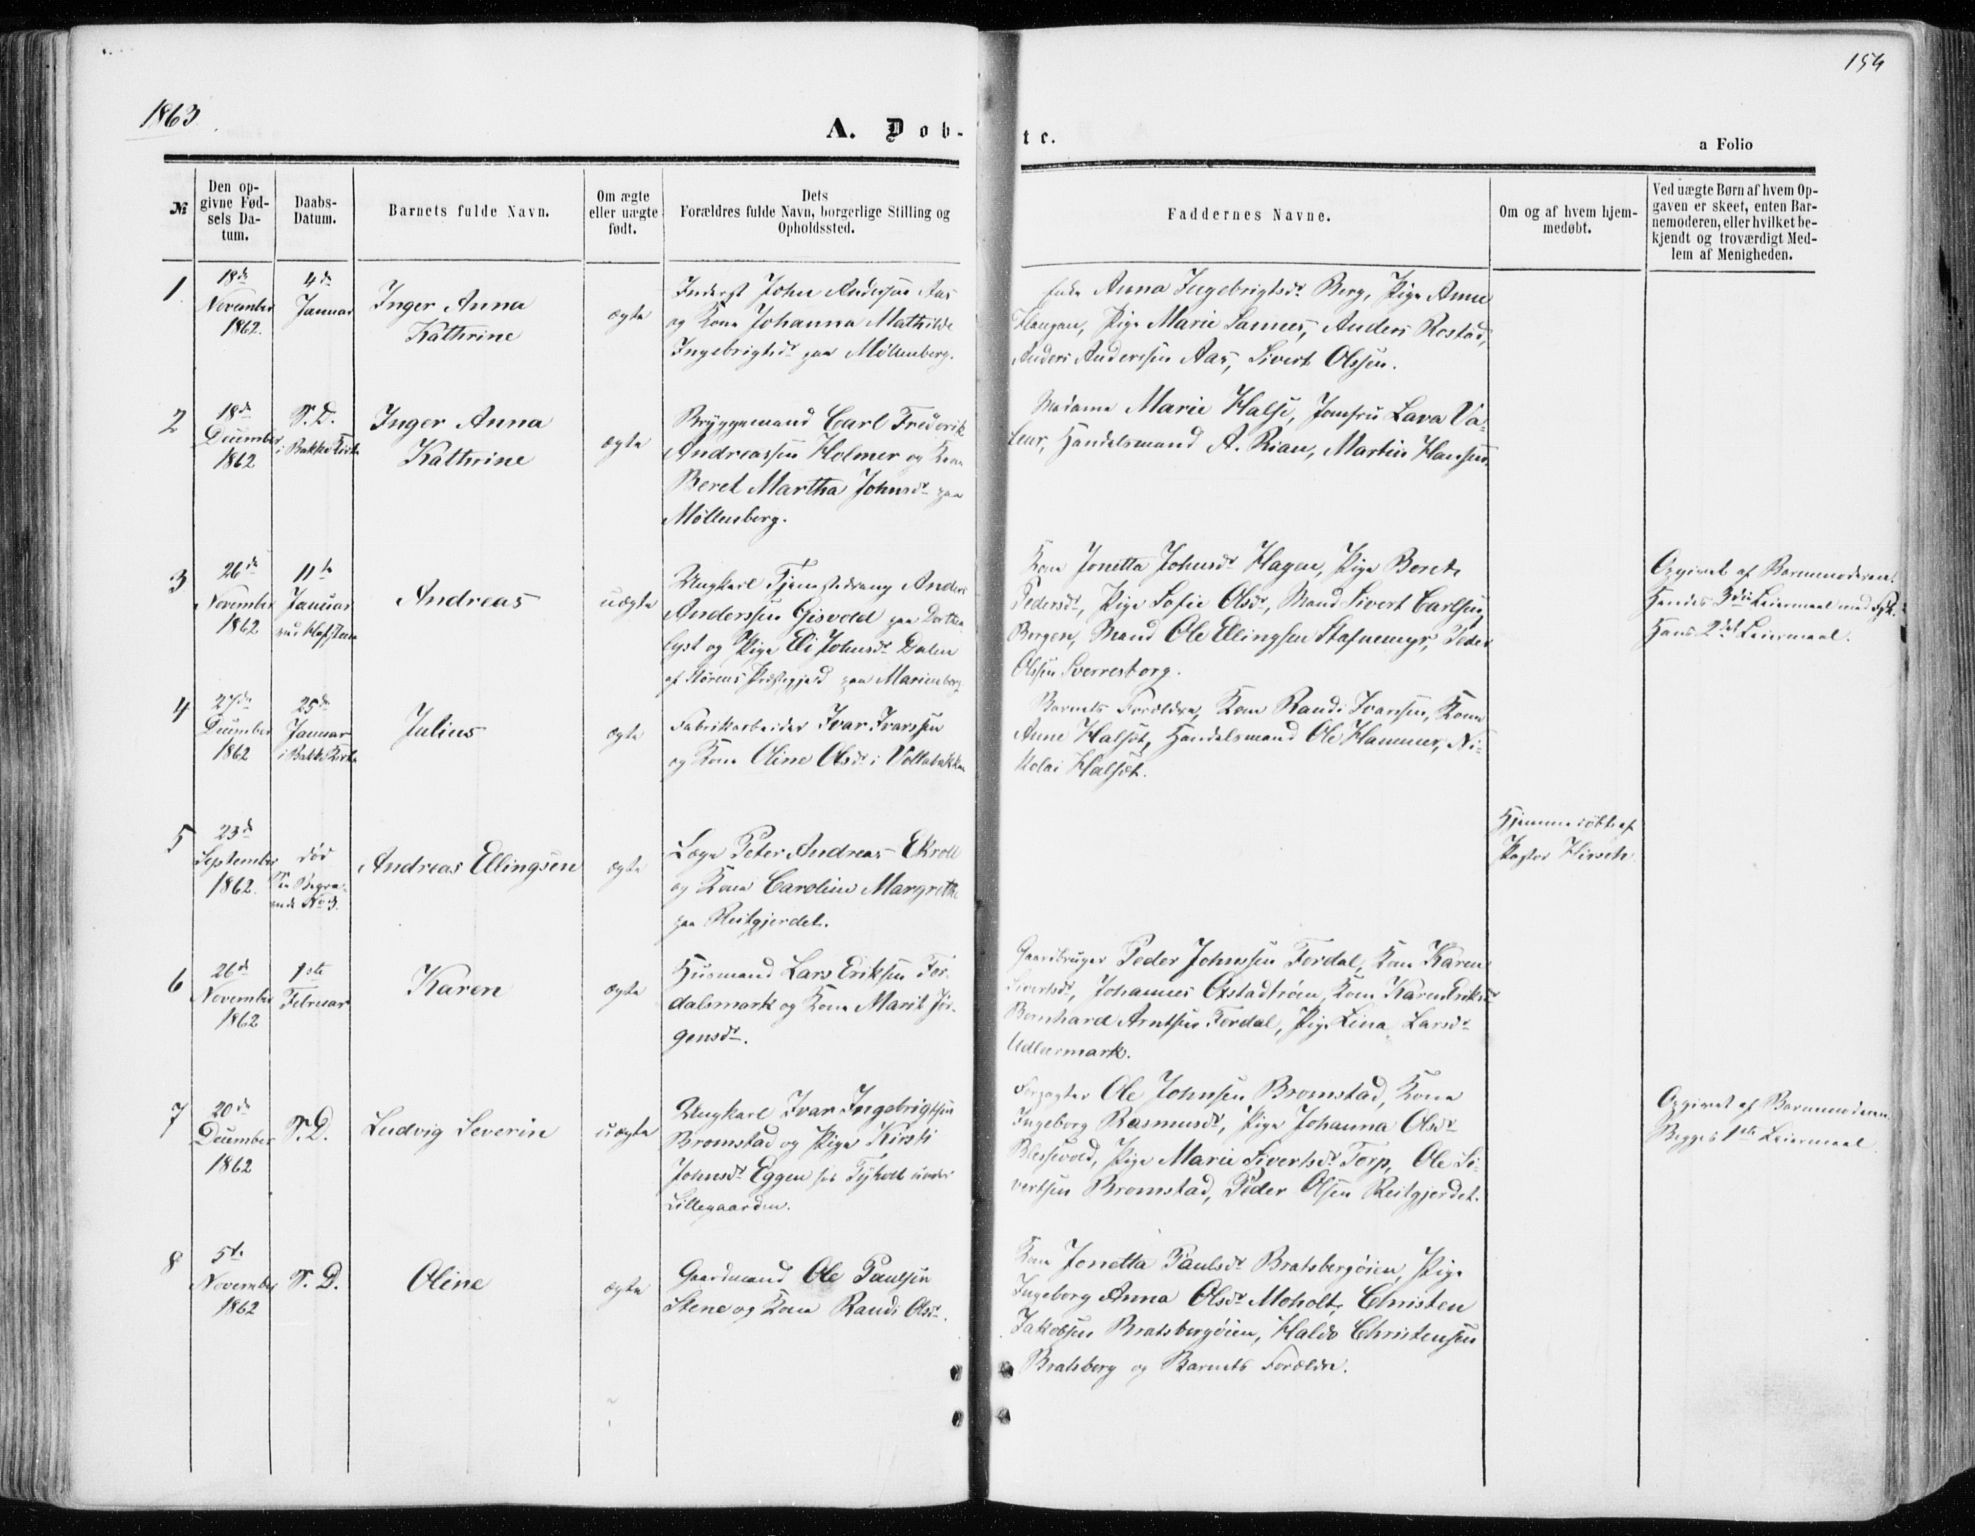 154
1863.
A. Døb-
te.
a Folio
№
Den op-
givne Fød-
sels Da-
tum.
Daabs-
Datum.
Barnets fulde Navn.
Om ægte
eller uægte
født.
Dets
Forældres fulde Navn, borgerlige Stilling og
Opholdssted.
Faddernes Navne.
Om og af hvem hjem-
medøbt.
Ved uægte Børn af hvem Op-
gaven er skeet, enten Bar-
nemoderen, eller hvilket be-
kjendt og troværdigt Med-
lem af Menigheden.
1
18de
November
1862.
4de
Januar
Inger Anna
Kathrine
ægte
Inderst John Andersen Aas
og Kone Johanna Mathilde
Ingebrigtsdr paa Møllenberg.
Enke Anna Ingebrigtsdr Berg, Pige Anne
Haugan, Pige Marie Sannes, Anders Rostad,
Anders Andersen Aas, Sivert Olssen.
2
18de
December
1862
S. D.
i Bakke Kirke
Inger Anna
Kathrine
ægte
Bryggemand Carl Frederik
Andreassen Holmer og Kone
Beret Martha Johnsdr paa
Møllenberg.
Madame Marie Halse, Jomfru Lava Va-
leur, Handelsmand A. Rian, Martin Hansen.
3
26de
November
1862
11te
Januar
Andreas
uægte
Ungkarl Tjenestedreng Anders
Anderssen Gisvold paa Dorthea-
lyst og Pige Eli Johnsdr Dalen
af Størens Præstegjeld paa Marienborg
Kone Jonetta Johnsdr Hagen, Pige Beret
Pedersdr, Pige Sofie Olsdr, Mand Sivert Carlsen
Bergen, Mand Ole Ellingsen Stafnemyr, Peder
Olssen Sverresborg.
Opgivet af Barnemoderen.
Hendes 3die Leiermaal med
Hans 2det Leiermaal.
4
27de
December
1862
25de
Januar
i Bakke Kirke
Julius
ægte
Fabrikarbeider Ivar Ivarssen
og Kone Oline Olsdr i Vollabakken
Barnets Forældre, Kone Randi Ivarsen, Kone
Anne Halset, Handelsmand Ole Hammer, Ni-
kolai Halset.
5
23de
September
1862.
død
Andreas Ellingsen
ægte
Læge Peter Andreas Ekroll
og Kone Caroline Margrethe
paa Reitgjerdet.
Hjemmedøbt af
Pastor Hirsch.
6
26de
November
1862
1ste
Februar
Karen
ægte
Husmand Lars Eriksen For-
dalsmark og Kone Marit Jør-
gensdr.
Gaardbruger Peder Johnsen Fordal, Kone Karen
Sivertsdr, Johannes Oxstadtrøen, Kone Karen Eriksdr
Bernhard Arntsen Fordal, Pige Lina Larsdr
Udlermark.
7
20de
December
1862
S. D.
Ludvig Severin
uægte
Ungkarl Ivar Ingebrigtsen
Bromstad og Pige Kirsti
Johnsdr Eggen hos Tyholt under
Lillegaarden.
Forpagter Ole Johnsen Bromstad, Kone
Ingeborg Rasmusdr, Pige Johanna Olsdr
Blessevold, Pige Marie Sivertsdr Torp, Ole Si-
vertsen Bromstad, Peder Olsen Reitgjerdet.
Opgivet af Barnemoderen
Begges 1ste Leiermaal
8
5te
November
1862
S. D.
Oline
ægte
Gaardmand Ole Paulsen
Stene og Kone Randi Olsdr.
Kone Jonetta Paulsdr Bratsbergøien, Pige
Ingeborg Anna Olsdr Moholt, Christen
Jakobsen Bratsbergøien, Haldo Christensen
Bratsberg og Barnets Forældre.